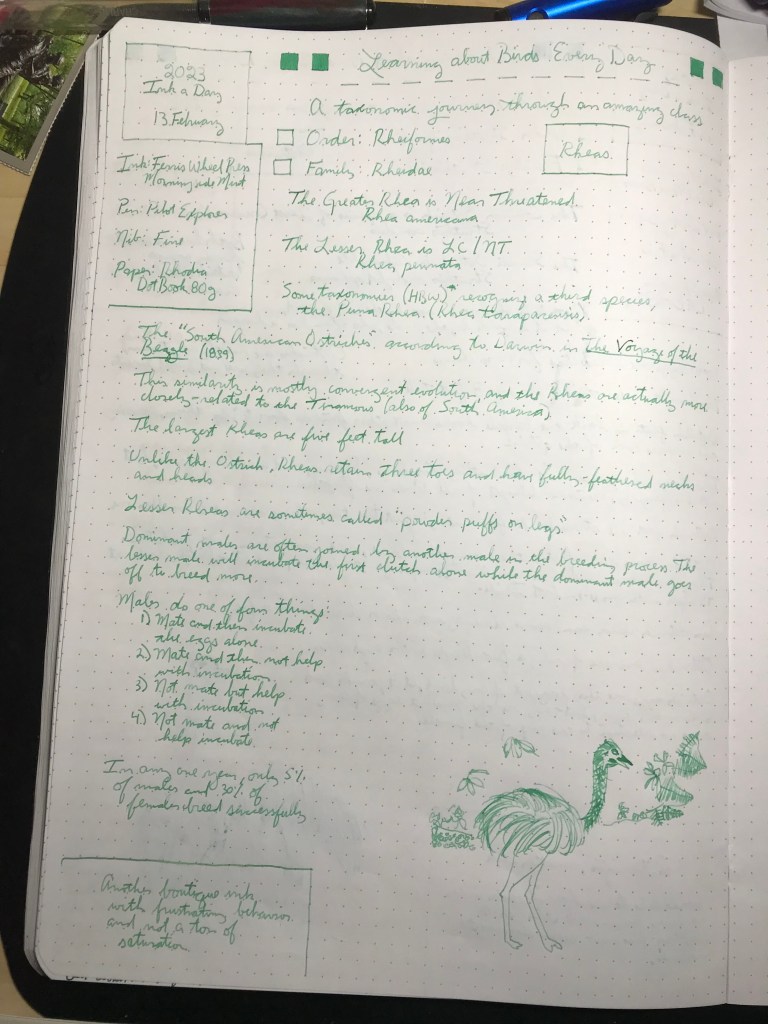 2023
Ink a Day
13 February
Learning about Birds Every Day
A taxonomic journey through an amazing class
Order: Rheiformes
Family: Rheidae
Rheas
Ink: Ferris Wheel Press
Morningside Mint
Pen: Pilot Explorer
Nib: Fine
Paper: Rhodia
Dot Book 80g
The Greater Rhea is Near Threatened.
Rhea americana
The Lesser Rhea is LC/NT.
Rhea pennata
Some taxonomies (HBW) recognize a third species,
the Puna Rhea. (Rhea tarapacensis).
The "South American Ostriches" according to Darwin in The Voyage of the
Beagle (1839)
This similarity is mostly convergent evolution, and the Rheas are actually more
closely-related to the Tinamous (also of South America)
The largest Rheas are five feet tall
Unlike the Ostrich, Rheas retain three toes and have fully-feathered necks
and heads
Lesser Rheas are sometimes called "powder puffs on legs"
Dominant males are often joined by another male in the breeding process. The
lesser male will incubate the first clutch alone while the dominant male goes
off to breed more.
Males do one of four things:
1) Mate and then incubate
the eggs alone
2) Mate and then not help
with incubation
3) Not mate but help
with incubation
4) Not mate and not
help incubate
In any one year, only 5%
of males and 30% of
females breed successfully
Another boutique ink
with frustrating behavior
and not a ton of
saturation